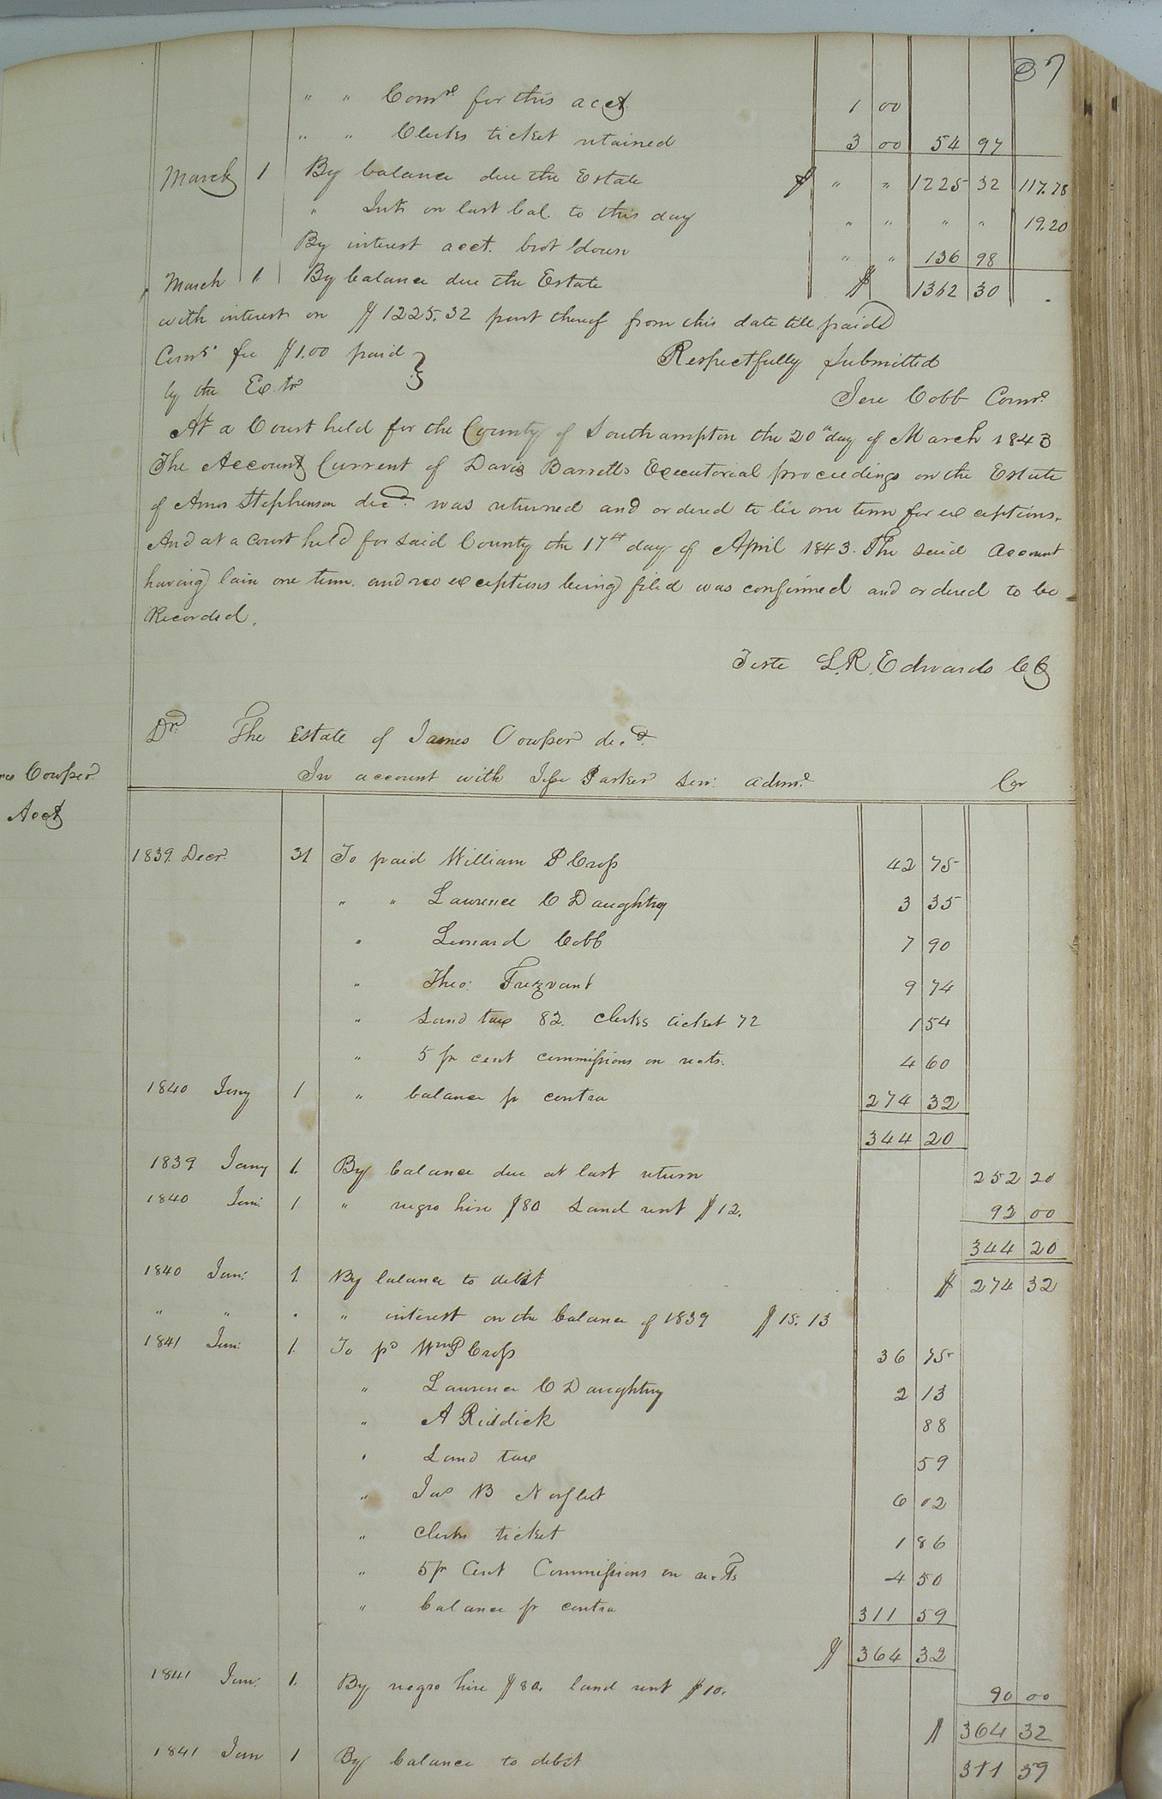 87
" " Comr for this acct 1 00
" " Clerks ticket retained 3 00 54 97
March 1 By balance due the Estate $ " " 1225 32 117.78
" Int. on last bal to this day " " " " 19.20
By interest acct. brot down " " 136 98
March 1 By balance due the Estate $ 1362 30
with interest on $1225.32 part thereof from this date till paid
Comrs fee $1.00 paid } Respectfully Submitted
by the Extr Jere Cobb Comr
At a Court held for the County of Southampton the 20th day of March 1843
The Account Current of Davis Barretts Executorial proceedings on the Estate
of Amos Stephenson decd. was returned and ordered to lie one term for exceptions.
And at a court held for said County the 17th day of April 1843. The said Account
having lain one term and no exceptions being filed was confirmed and ordered to be
Recorded.
Teste L.R. Edwards CC
Dr. The Estate of James Cowper decd.
Cowper
In account with Jesse Parker Senr. admr. Cr
Acct
1839 Decr. 31 To paid William P Cross 42 75
" " Lawrence C Daughtry 3 35
" Leonard Cobb 7 90
" Theo: Trezvant 9 74
" Land tax 82. Clerks ticket 72 1 54
" 5 pr cent commissions on rects. 4 60
1840 Jany 1 " balance pr contra 274 32
344 20
1839 Jany 1. By balance due at last return 252 20
1840 Jan: 1 " negro hire $80 Land rent $12. 92 00
344 20
1840 Jan: 1. By balance to debit $ 274 32
" " " " interest on the balance of 1839 $15.13
1841 Jan: 1. To pd Wm P Cross 36 75
" Lawrence C Daughtry 2 13
" A Riddick 88
" Land tax 59
" Jas B Norfleet 6 02
" Clerks ticket 1 86
" 5 pr Cent Commissions on rects 4 50
" balance pr contra 311 59
$ 364 32
1841 Jan: 1. By negro hire $80. land rent $10. 90 00
$ 364 32
1841 Jan 1 By balance to debit 311 59